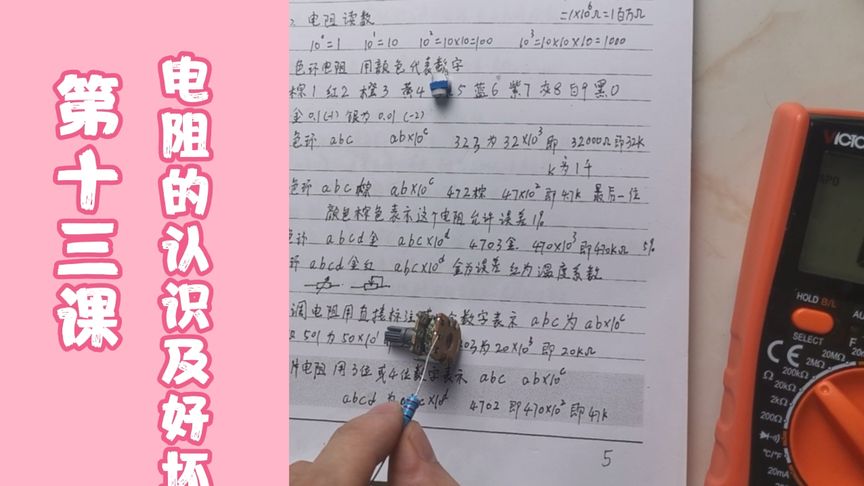 第十三课
电阻的认识及好坏
电阻读数 =1×10⁶Ω=1百万Ω
10⁰=1 10¹=10 10²=10×10=100 10³=10×10×10=1000
色环电阻 用颜色代表数字
棕1 红2 橙3 黄4 5 蓝6 紫7 灰8 白9 黑0
金0.1(-1) 银为0.01(-2)
色环 abc ab×10ᶜ 323为32×10³即 32000Ω即32k
k为1千
色环abc棕 ab×10ᶜ 472棕 47×10²即4.7k 最后一位
颜色棕色表示这个电阻允许误差1%
环 abcd金 abc×10ᵈ 4703金 470×10³即470kΩ 5%
环abcd金红 abc×10ᵈ 金为误差 红为温度系数
调电阻用直接标注 数字表示 abc为ab×10ᶜ
501为50×10¹ 203为20×10³即20kΩ
片电阻 用3位或4位数字表示 abc ab×10ᶜ
abcd 为abc×10ᵈ 4702即470×10²即47k
5
VICTO
HOLD B/L
SELECT
Ω
2kΩ
20kΩ
200kΩ
2MΩ
20mA
℃/℉